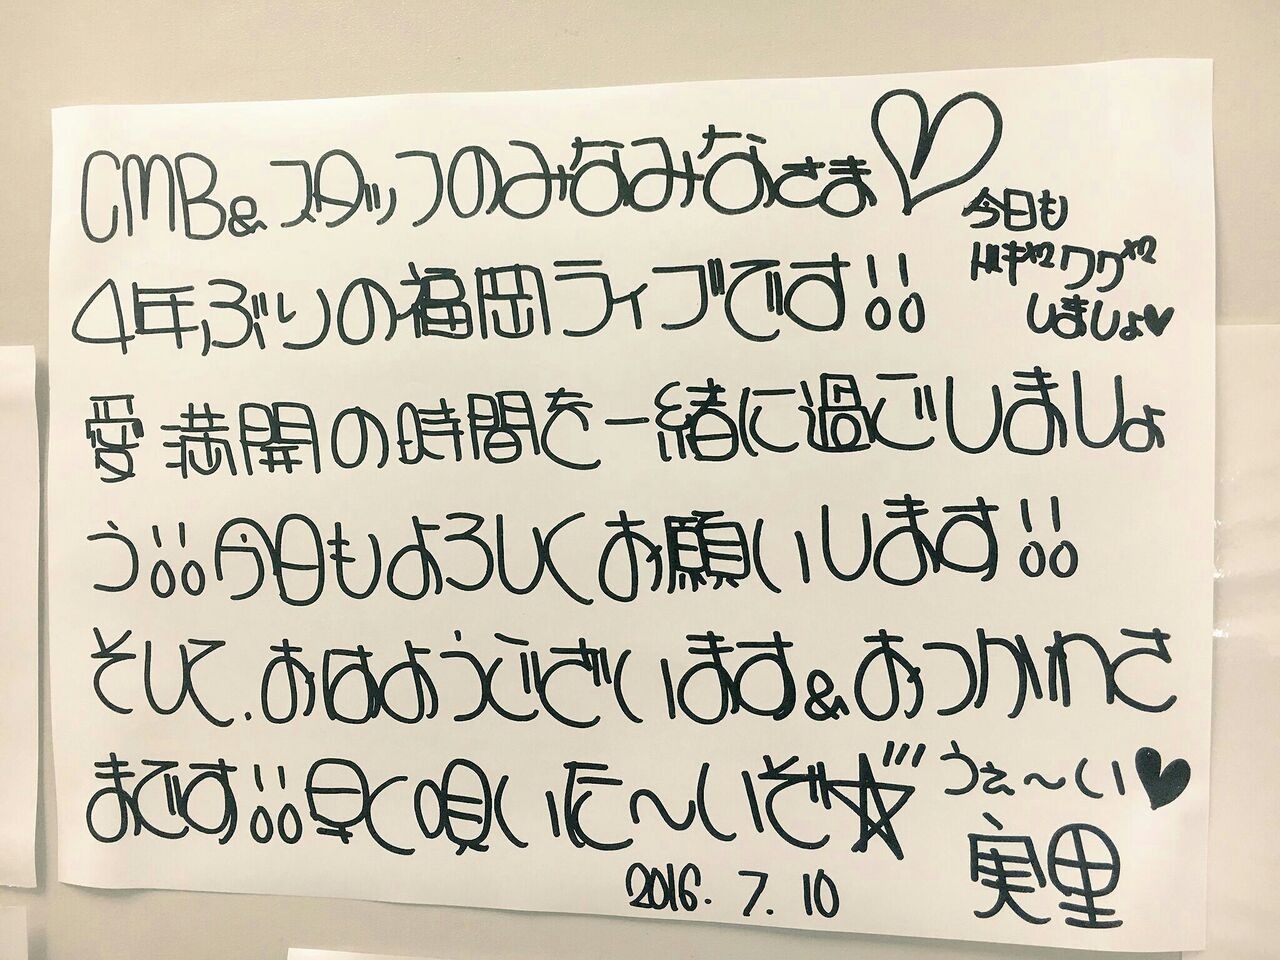 CMB&スタッフのみなみなさま♡
今日も
ドキ×2ワク×2
しましょ♥
4年ぶりの福岡ライブです!!
愛満開の時間を一緒に過ごしましょ
う!!今日もよろしくお願いします!!
そして.おはようございます&おつかれさ
まです!!早く唄いた〜いぞ☆
うぇ〜い♥
実里
2016.7.10